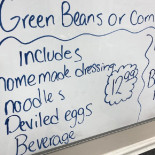 Green Beans or
Includes
homemade dressing
12.99
noodles
Deviled eggs
Beverage